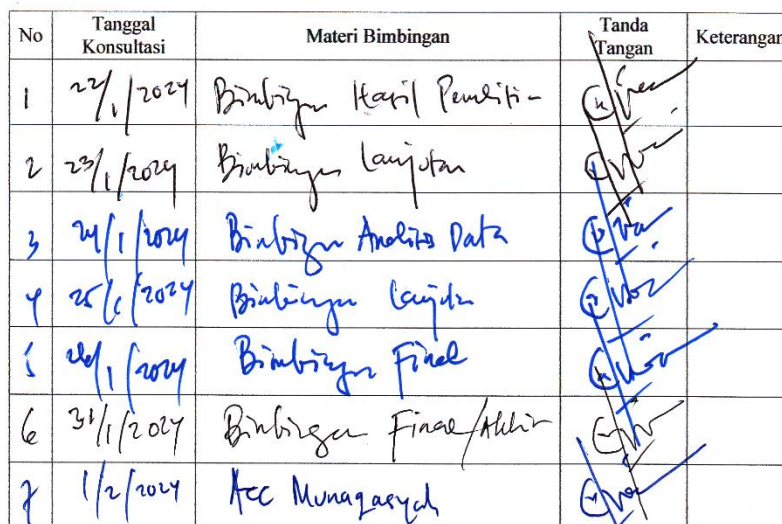 No Tanggal Konsultasi Materi Bimbingan Tanda Tangan Keterangan
1 22/1/2024 Bimbingan Hasil Penelitian
2 23/1/2024 Bimbingan Lanjutan
3 24/1/2024 Bimbingan Analisis Data
4 25/1/2024 Bimbingan Lanjutan
5 26/1/2024 Bimbingan Final
6 31/1/2024 Bimbingan Final/Akhir
7 1/2/2024 Acc Munaqasyah